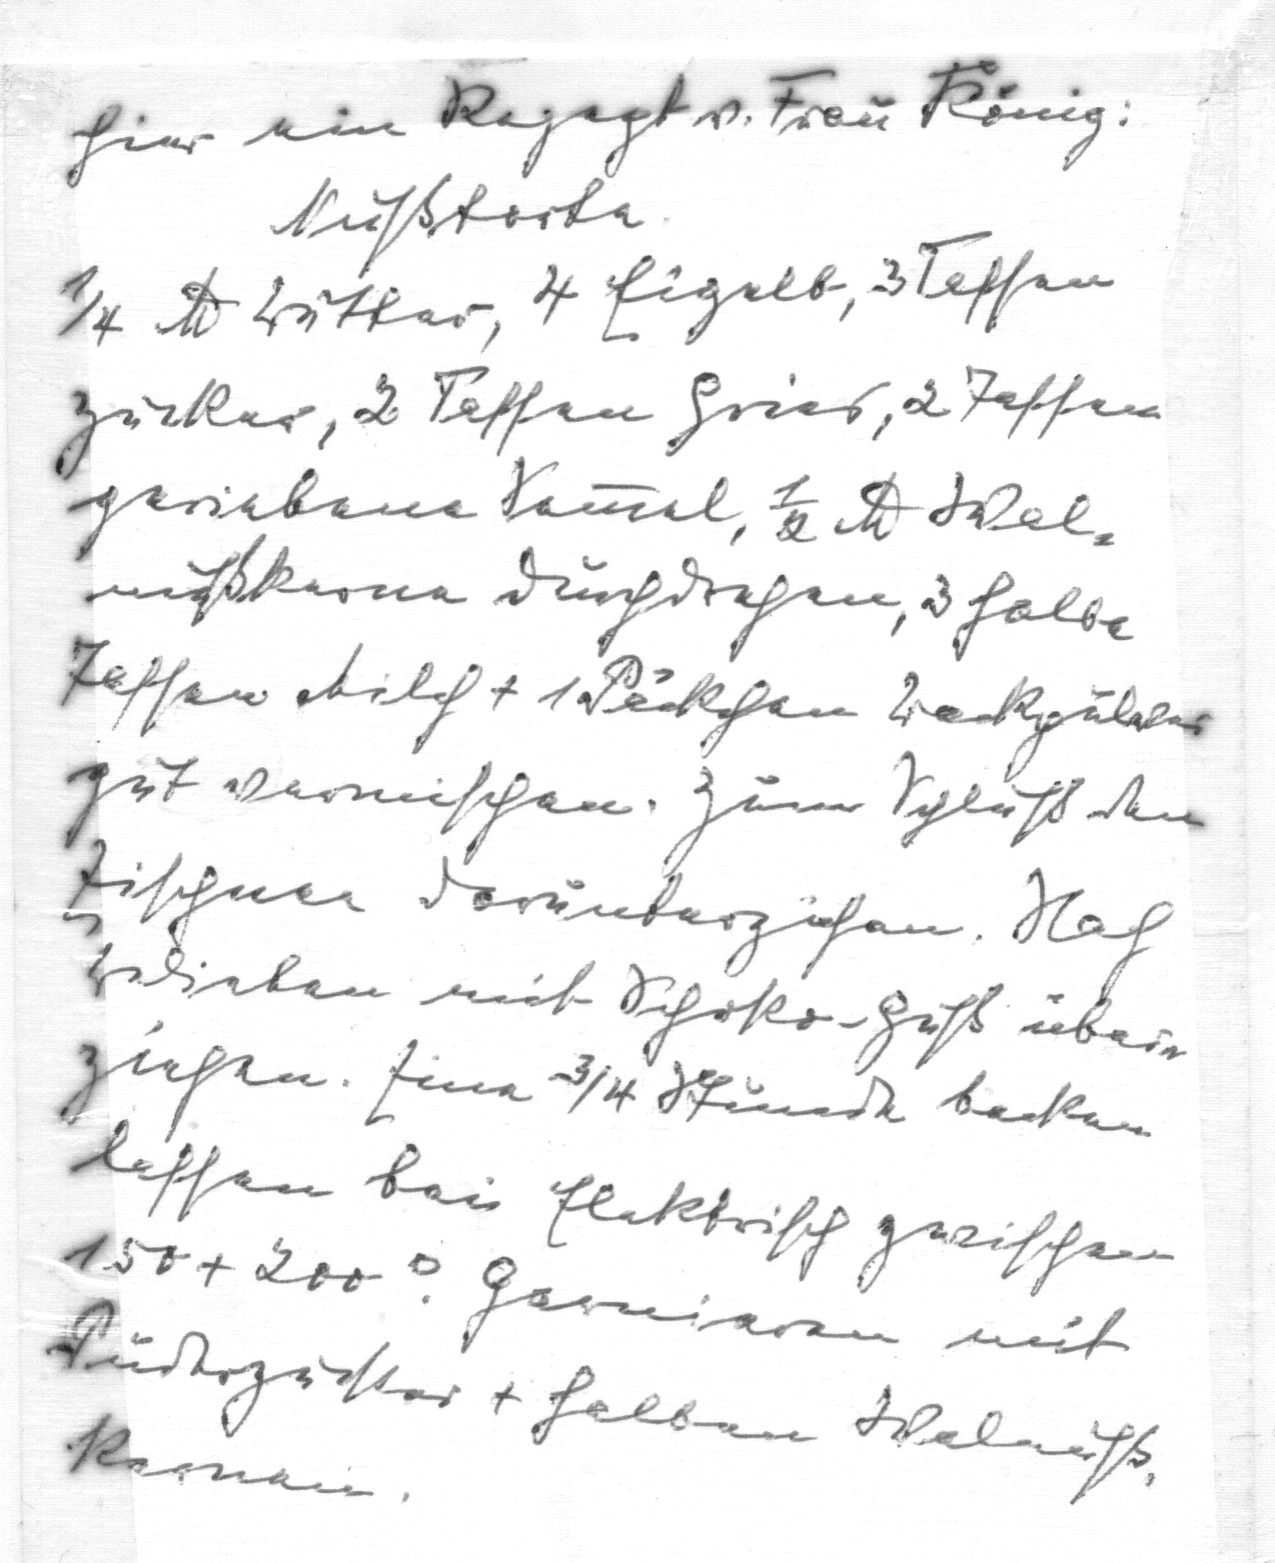 hier ein Rezept v. Frau König:
Nußtorte.
1/4 ℔ Butter, 4 Eigelb, 3 Tassen
Zucker, 2 Tassen Gries, 2 Tassen
geriebene Semmel, 1/2 ℔ Wal-
nußkerne durchdrehen, 3 halbe
Tassen Milch + 1 Päckchen Backpulver
gut vermischen. Zum Schluß den
Eischnee darunterziehen. Nach
Belieben mit Schoko-Guß über-
ziehen. Eine 3/4 Stunde backen
lassen bei Elektrisch zwischen
150 + 200°. Garnieren mit
Puderzucker + halben Walnuß-
kernen.